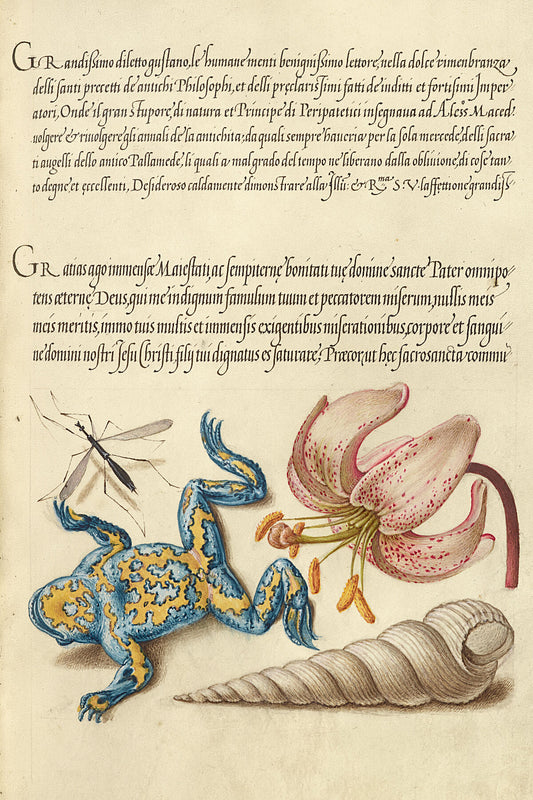 GRandißimo diletto gustano, le humane menti benignißimo lettore, nella dolce rimenbranza,
delli santi precetti de antichi Philosophi, et delli preclarissimi fatti de inditi et fortisimi Imper
atori, Onde il gran stupore, di natura et Principe di Peripatetici insegnaua ad Aless Maced.
uolgere & riuolgere gli annali de la antichita, da quali sempre haueria per la sola mercede, delli sacra
ti augelli dello amico Pallamede, li quali a malgrado del tempo ne liberano dalla obliuione, di cose tan
to degne et eccellenti, Desideroso caldamente dimonstrare alla Illu: & Rma S. V. laffettione grandiss
GRatias ago immensæ Maiestati, ac sempiternę bonitati tuę domine sancte Pater omnipo-
tens æternę Deus, qui me indignum famulum tuum et peccatorem miserum, nullis meis
meis meritis, immo tuis multis et immensis exigentibus miserationibus, corpore et sangui-
ne domini nostri Jesu Christi filij tui dignatus es saturare: Præcor, ut hęc sacrosancta commu